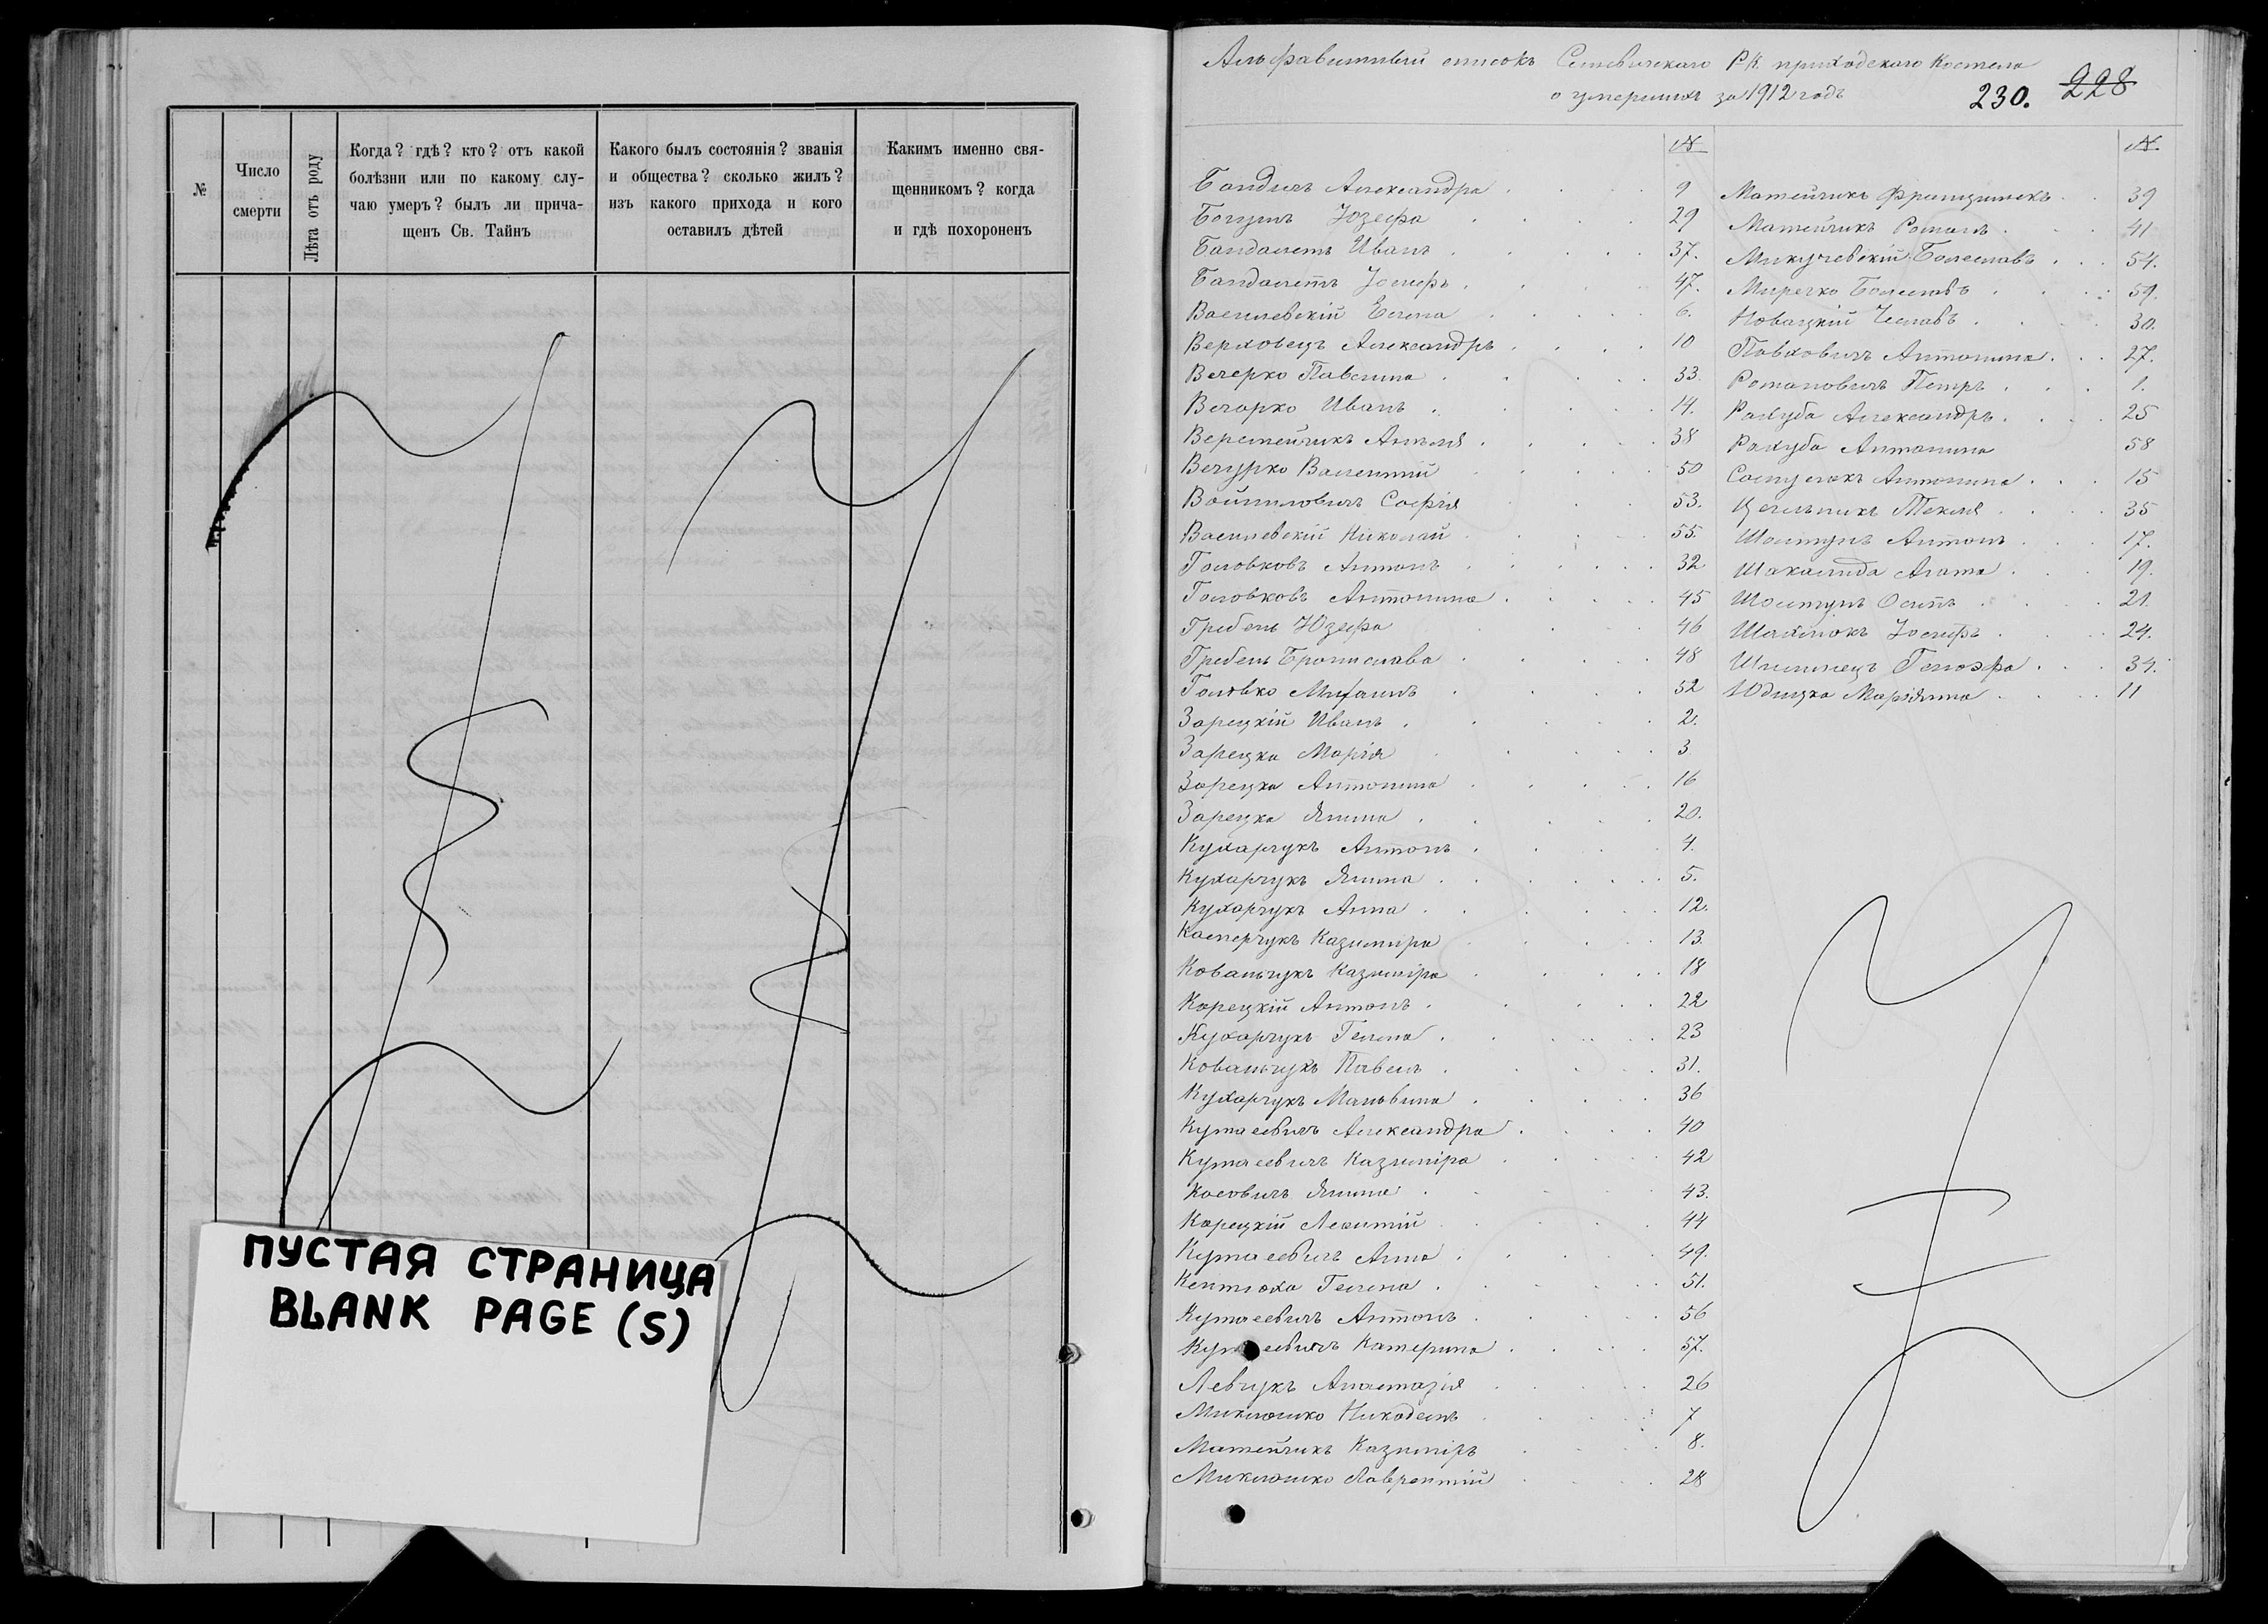 №
Число
смерти
Лѣта отъ роду
Когда? гдѣ? кто? отъ какой
болѣзни или по какому слу-
чаю умеръ? былъ ли прича-
щенъ Св. Тайнъ
Какого былъ состоянія? званія
и общества? сколько жилъ?
изъ какого прихода и кого
оставилъ дѣтей
Каким именно свя-
щенникомъ? когда
и гдѣ похороненъ
ПУСТАЯ СТРАНИЦА
BLANK PAGE (S)
Альфавитный списокъ Р-К. приходскаго Костела
о умершихъ за 1912 годъ
230. 228
№
Бандичъ Александра 9
Богушъ Юзефа 29
Бандалетъ Иванъ 37.
Бандалетъ Іосифъ 47.
Василевскій Елена 6.
Верховецъ Александръ 10
Вечерко Павлина 33
Вечорко Иванъ 14.
Веремейчикъ Анеля 38
Вечурко Валентій 50
Войтиловичъ Софія 53.
Василевскій Николай 55.
Головковъ Антонъ 32
Головковъ Антонина 45
Гребень Юзефа 46
Гребень Бронислава 48
Головко Михаилъ 52
Зарецкій Иванъ 2.
Зарецка Марія 3
Зарецка Антонина 16
Зарецка Янина 20.
Кухарчукъ Антонъ 4.
Кухарчукъ Янина 5.
Кухарчукъ Анна 12.
Касперчукъ Казимира 13.
Ковальчукъ Казиміра 18
Карецкій Антонъ 22
Кухарчукъ Гелена 23
Ковальчукъ Павелъ 31.
Кухарчукъ Мальвина 36
Кутасевичъ Александра 40
Кутасевичъ Казиміра 42
Косовичъ Янина 43.
Карецкій Леонтій 44
Кутасевичъ Анна 49.
Кентюха Гелена 51.
Кутасевичъ Антонъ 56
Кутасевичъ Катерина 57.
Левчукъ Анастазія 26
Миклошко Никодемъ 7
Матейчикъ Казиміръ 8.
Миклошко Лаврентій 28
№.
Матейчикъ Францишекъ 39
Матейчикъ Романъ 41
Микучевскій Болеславъ 54.
Миречко Болеславъ 59.
Новацкій Чеславъ 30.
Павховичъ Антонина 27.
Романовичъ Петръ 1.
Рахуба Александръ 25
Рахуба Антонина 58
Антонина 15
Цегельникъ Текля 35
Шолтунъ Антонъ 17.
Шакалида Агата 19.
Шолтунъ Осипъ 21.
Шахнокъ Іосифъ 24.
Генозфа 34.
Юдицка Маріянна 11